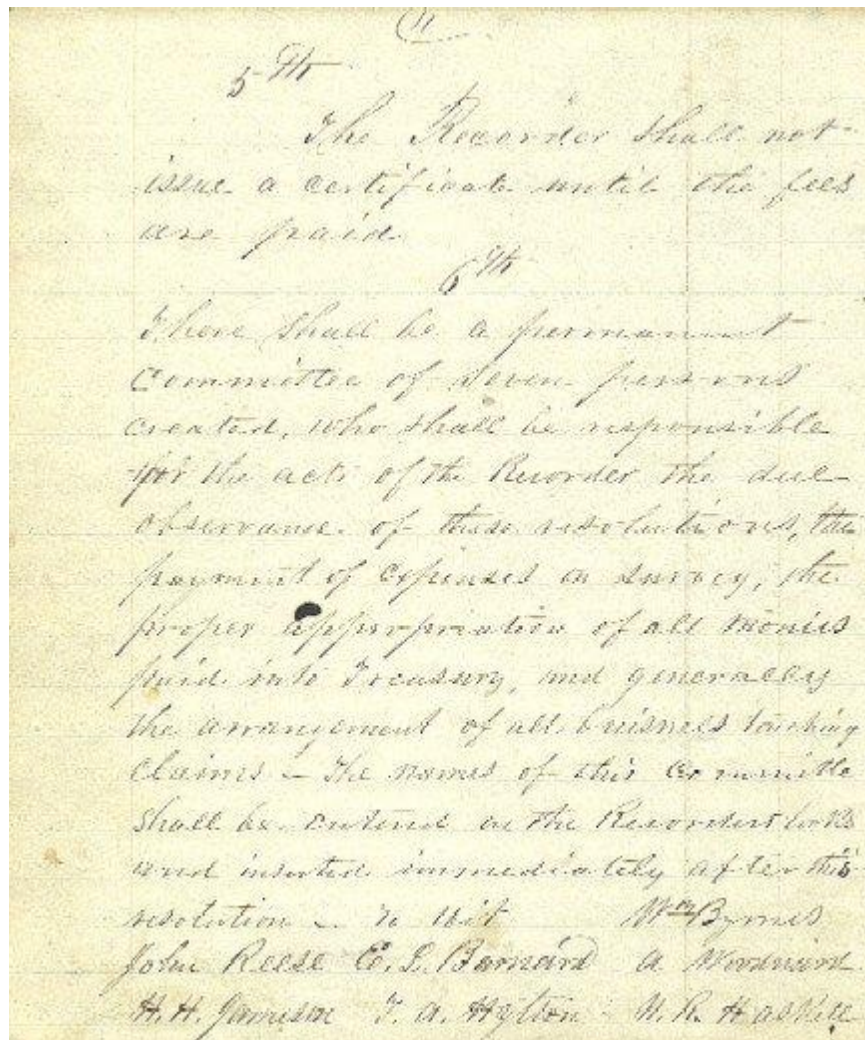 5th
The Recorder shall not
issue a certificate until the fees
are paid
6th
There shall be a permanent
Committee of seven persons
created, who shall be responsible
for the acts of the Recorder the due
observance of these resolutions, the
payment of expenses on survey, the
proper appropriation of all monies
paid into Treasury, and generally
the arrangement of all buisness touching
Claims – The names of this Committe
shall be entered on the Recorders books
and inserted immediately after this
resolution – To Wit Wm Byrnes
John Reese E. L. Barnard A Woodward
H. H. Jamison T. A. Hylton H. R. Haskill